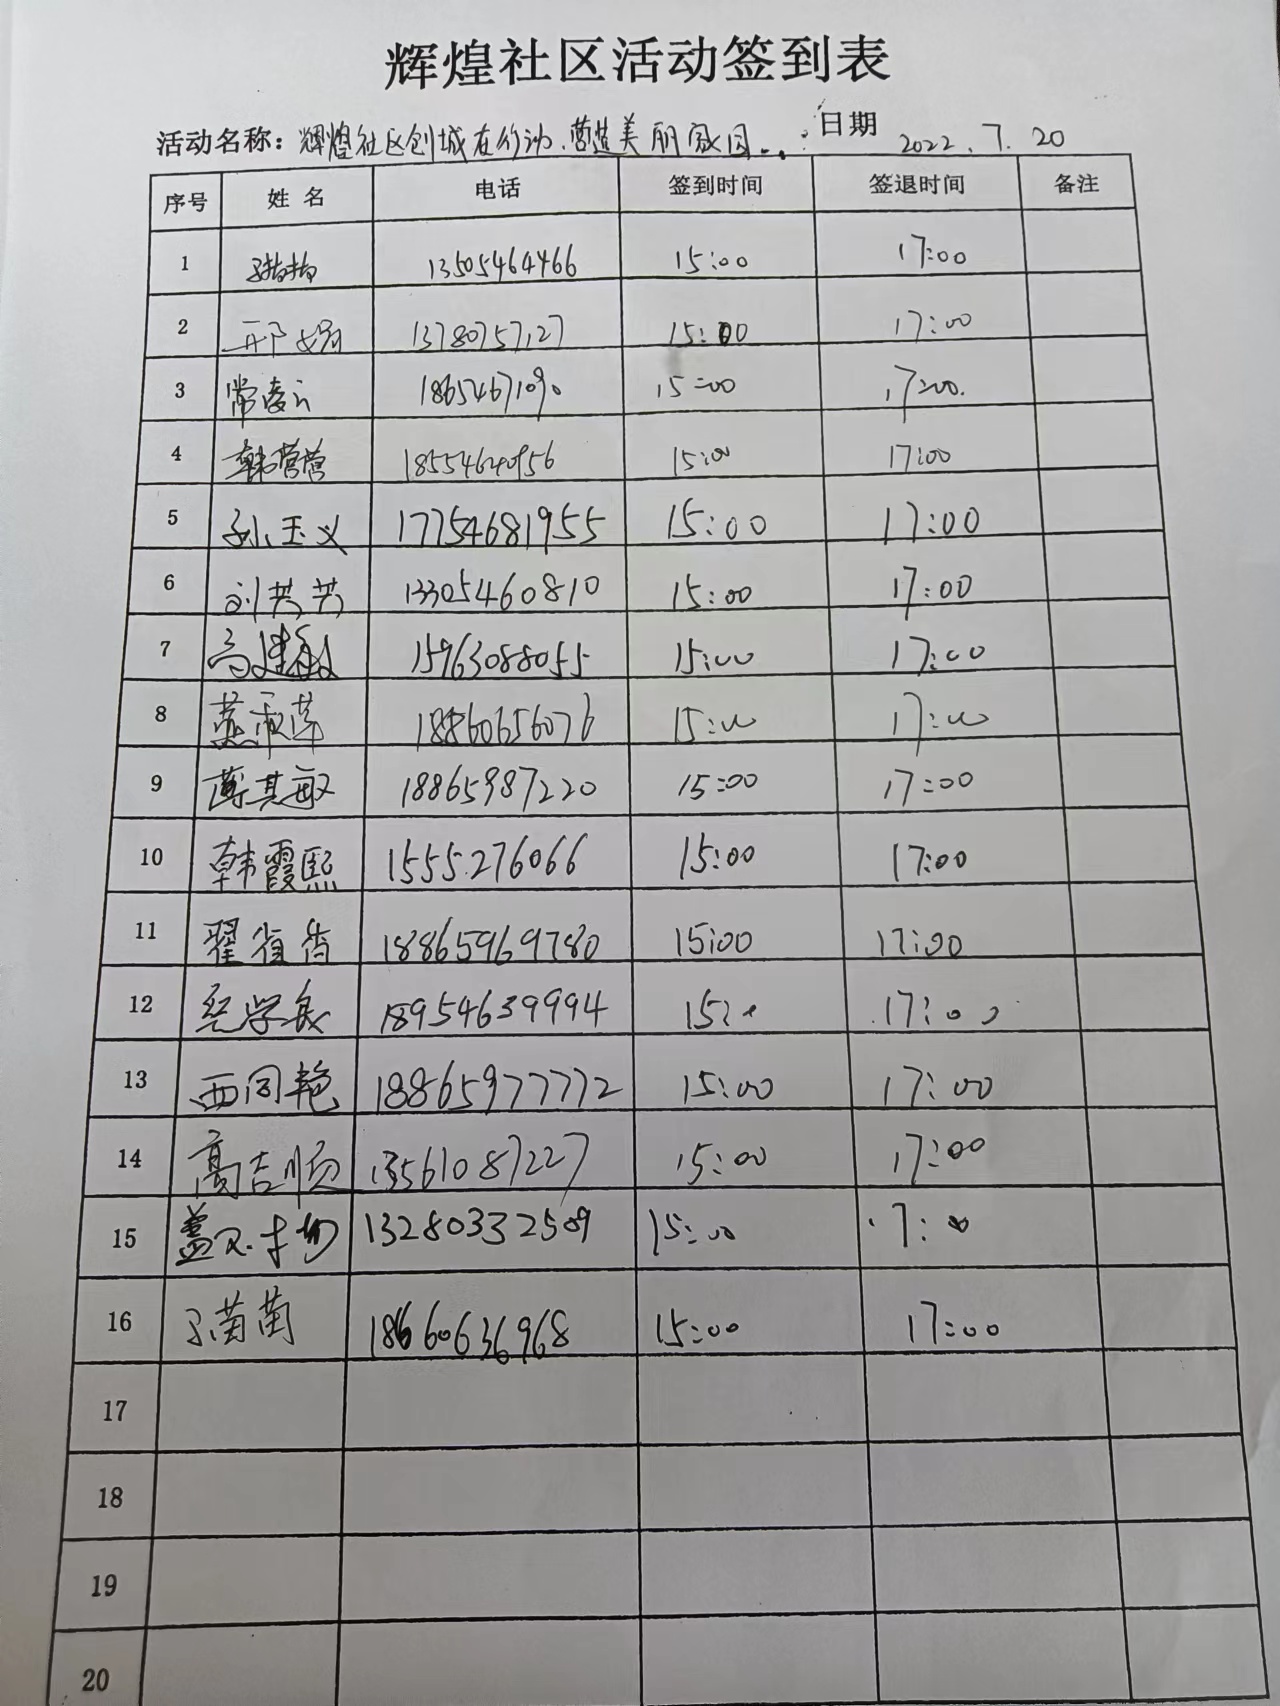 辉煌社区活动签到表
活动名称：辉煌社区创城在行动.营造美丽家园 日期 2022.7.20
序号 姓名 电话 签到时间 签退时间 备注
1 13505464466 15:00 17:00
2 邢娟 13780757127 15:00 17:00
3 常凌云 18654671090 15:00 17:00
4 韩营营 15:00 17:00
5 孙玉义 17754681955 15:00 17:00
6 刘芳芳 13305460810 15:00 17:00
7 高建敏 15963088055 15:00 17:00
8 燕雨萍 18860656076 15:00 17:00
9 薄其敏 18865987220 15:00 17:00
10 韩霞熙 1555.276066 15:00 17:00
11 翟省省 18865969780 15:00 17:00
12 学良 18954639994 17:00
13 西同艳 18865977772 15:00 17:00
14 高吉顺 13561087227 15:00 17:00
15 盖 13280332509 15:00
16 菌菌 18660636968 15:00 17:00
17
18
19
20